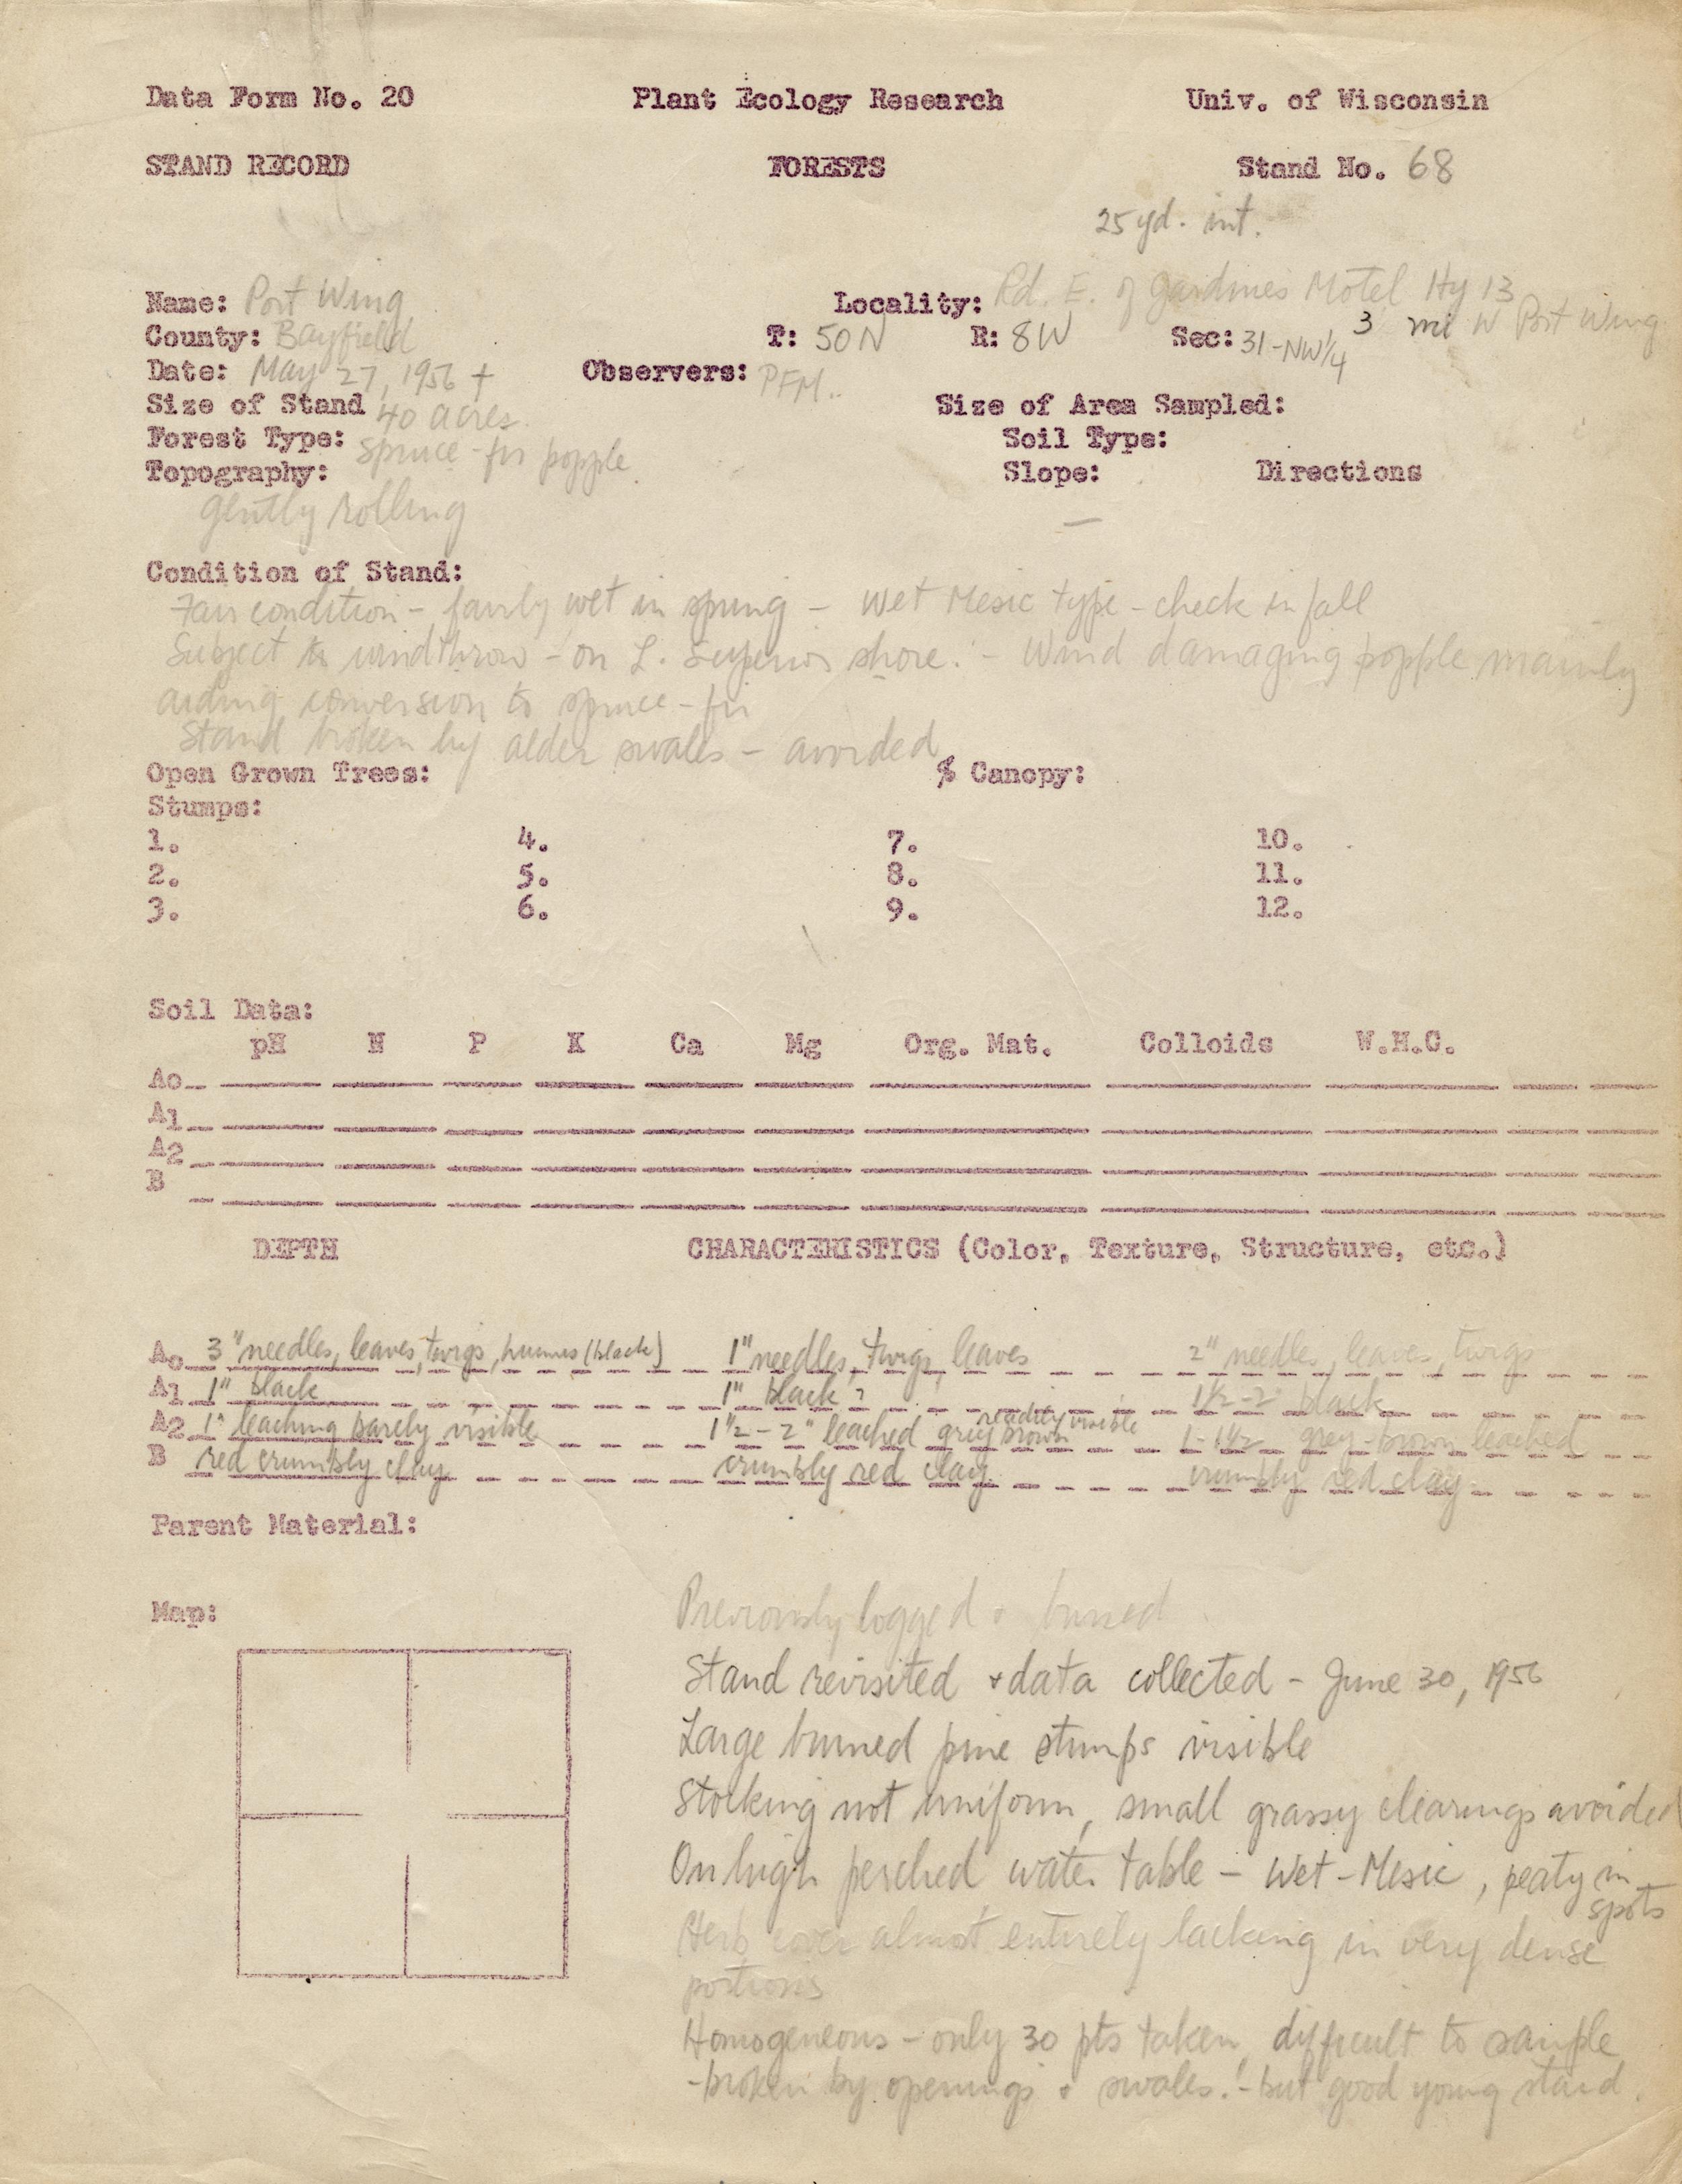 Data Form No. 20 Plant Ecology Research Univ. of Wisconsin
STAND RECORD FORESTS Stand No. 68
25 yd. int.
Name: Port Wing Locality: Rd. E. of Gardines Motel Hy 13
County: Bayfield T: 50N R: 8W Sec: 31-NW1/4 3 mi W Port Wing
Date: May 27, 1956 + Observers: PFM.
Size of Stand 40 acres. Size of Area Sampled:
Forest Type: Spruce-fir popple Soil Type:
Topography: Slope: Directions
gently rolling —
Condition of Stand:
Fair condition - fairly wet in spring - Wet Mesic type - check in fall
Subject to windthrow - on L. Superior shore. - Wind damaging popple mainly
aiding conversion to spruce-fir
Stand broken by alder swales - avoided
Open Grown Trees: % Canopy:
Stumps:
1. 4. 7. 10.
2. 5. 8. 11.
3. 6. 9. 12.
Soil Data:
pH N P K Ca Mg Org. Mat. Colloids W.H.C.
Ao
A1
A2
B
DEPTH CHARACTERISTICS (Color, Texture, Structure, etc.)
Ao 3" needles, leaves, twigs, humus (black) 1" needles, twigs, leaves 2" needles, leaves, twigs
A1 1" black 1" black ? 1 1/2-2" black
A2 1" leaching barely visible 1 1/2 - 2" leached grey brown readily visible 1-1 1/2 grey-brown leached
B red crumbly clay crumbly red clay crumbly red clay
Parent Material:
Map:
Previously logged & burned
Stand revisited & data collected - June 30, 1956
Large burned pine stumps visible
Stocking not uniform, small grassy clearings avoided
On high perched water table - Wet-Mesic, peaty in
spots
Herb cover almost entirely lacking in very dense
portions
Homogeneous - only 30 pts taken, difficult to sample
-broken by openings & swales. - but good young stand.